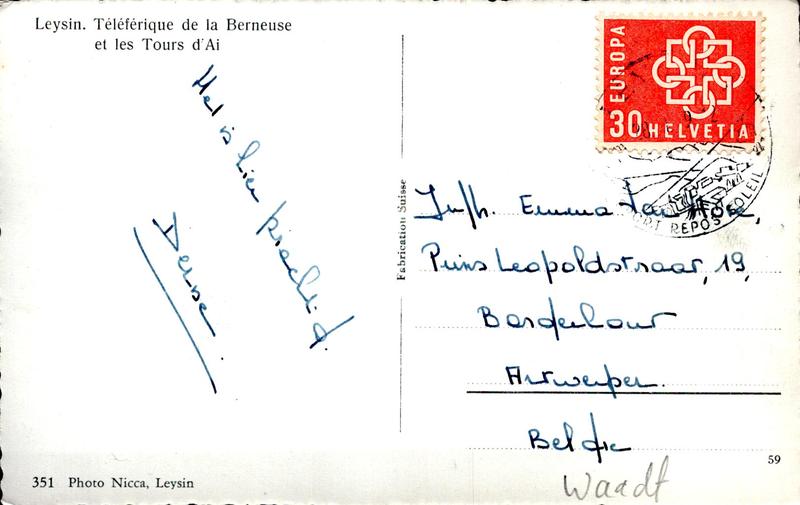 Leysin. Téléférique de la Berneuse
et les Tours d'Ai
EUROPA
30 HELVETIA
SPORT REPOS SOLEIL
Het is hier prachtig.
Denise.
Fabrication Suisse
Emma Van Hove,
Prins Leopoldstraat, 19,
Borgerhout
Antwerpen.
België
59
Waadt
351 Photo Nicca, Leysin